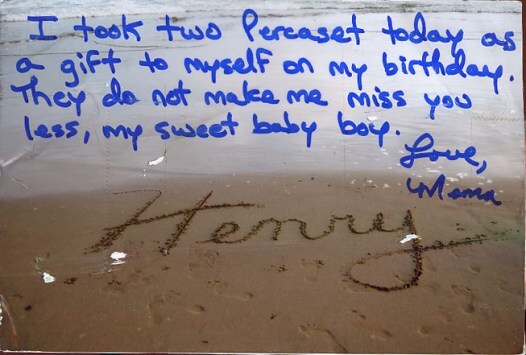 I took two Percaset today as
a gift to myself on my birthday.
They do not make me miss you
less, my sweet baby boy.
Love,
Mama
Henry